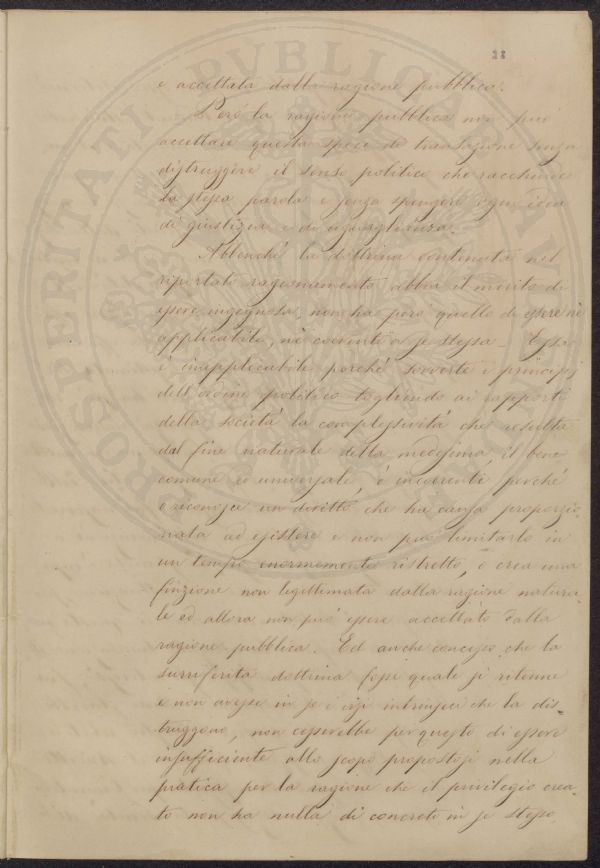 28
e accettata dalla ragione pubblica.
Però la ragione pubblica non può
accettare questa specie di transazione senza
distruggere il senso politico che racchiude
la stessa parola e senza spengere ogni idea
di giustizia e di eguaglianza.
Abbenché la dottrina contenuta nel
riportato ragionamento abbia il merito di
essere ingegnosa, non ha però quello di essere nè
applicabile, nè coerente a se stessa. Essa
è inapplicabile perché sovverte i principj
dell'ordine politico togliendo ai rapporti
della società la complessività che resulta
dal fine naturale della medesima, il bene
comune ed universale, è incoerente perché
o riconosce un diritto che ha causa proporzio-
nata ad esistere e non può limitarlo in
un tempo enormemente ristretto, o crea una
finzione non legittimata dalla ragione natura-
le ed allora non può essere accettato dalla
ragione pubblica. Ed anche concesso che la
surriferita dottrina fosse quale si ritenne
e non avesse in se i vizi intrinseci che la dis-
truggono, non cesserebbe per questo di essere
insufficiente allo scopo propostosi nella
pratica per la ragione che il privilegio crea-
to non ha nulla di concreto in se stesso,
PROSPERITATI PVBLICAE AVGENDAE